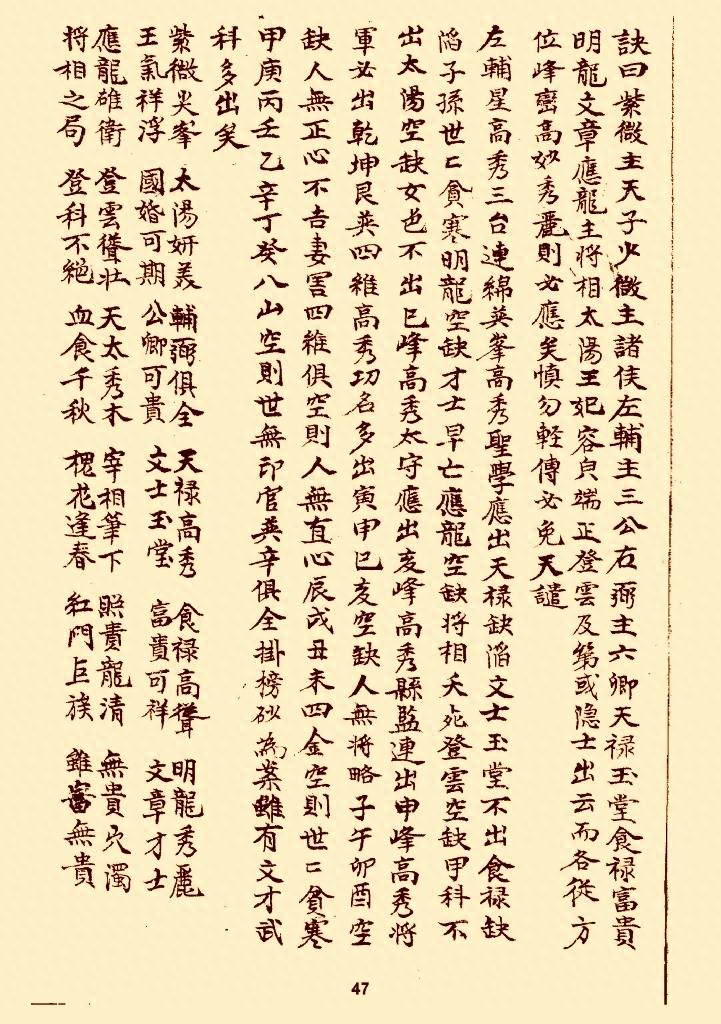 訣曰紫微主天子少微主諸侯左輔主三公右弼主六卿天禄玉堂食禄富貴
明龍文章應龍主将相太陽王妃容貞端正登雲及第或隐士出云而各從方
位峰巒高妙秀麗則必應矣慎勿軽傳必免天譴
左輔星高秀三台連綿英峯高秀聖學應出天禄缺滔文士玉堂不出食禄缺
滔子孫世〻貧寒明龍空缺才士早亡應龍空缺将相夭死登雲空缺甲科不
出太陽空缺女也不出巳峰高秀太守應出亥峰高秀縣監連出申峰高秀将
軍必出乾坤艮巽四維高秀功名多出寅申巳亥空缺人無将略子午卯酉空
缺人無正心不吉妻害四維俱空則人無直心辰戌丑未四金空則世〻貧寒
甲庚丙壬乙辛丁癸八山空則世無印官巽辛俱全掛榜砂為案雖有文才武
科多出矣
紫微尖峯 太陽妍美 輔弼俱全 天禄高秀 食禄高聳 明龍秀麗
王氣祥浮 國婚可期 公卿可貴 文士玉堂 富貴可祥 文章才士
應龍雄衛 登雲聳壮 天太秀木 宰相筆下 照貴龍清 無貴穴濁
将相之局 登科不絶 血食千秋 槐花逢春 紅門巨族 雖富無貴
47